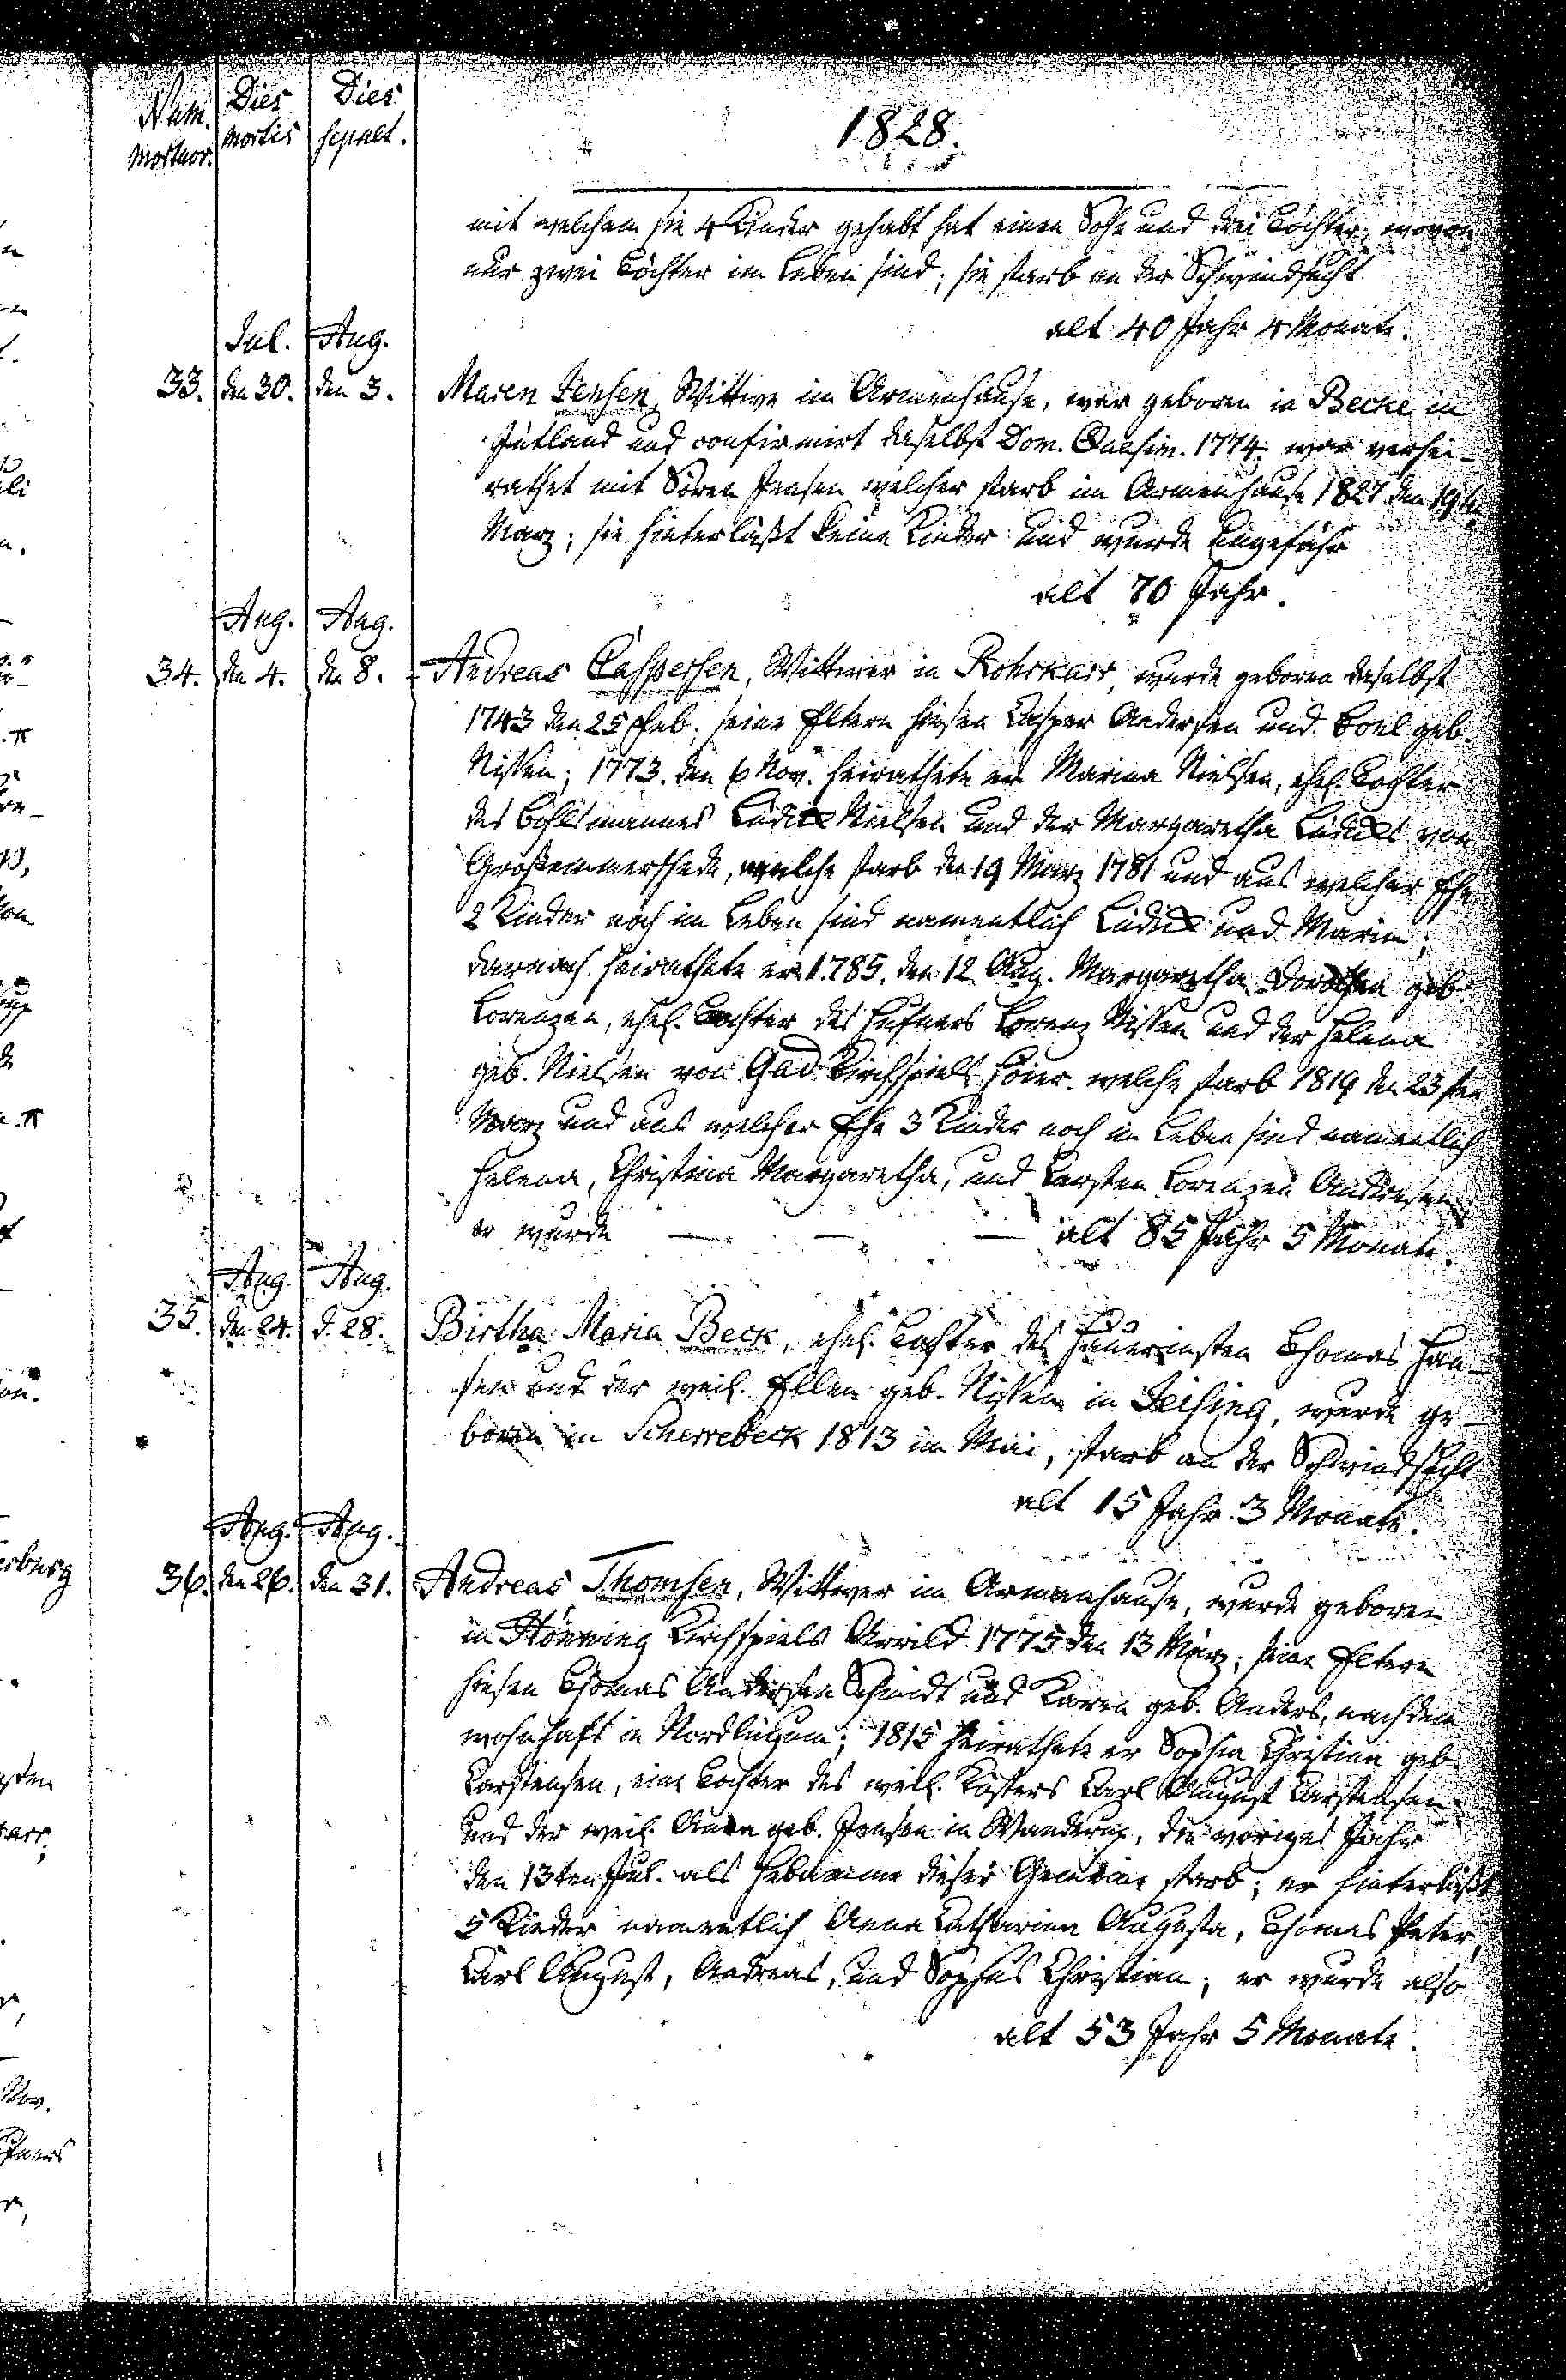 Num. mortuor.
Dies mortis
Dies sepult.
1828.
mit welchem sie 4 Kinder gehabt hat einen Sohn und drei Töchter, wovon
nur zwei Töchter im Leben sind; sie starb an der Schwindsucht
alt 40 Jahr 4 Monate.
Jul. Aug.
33. den 30. den 3. Maren Jensen, Wittwe im Armenhause, war geboren in Becke in
Jütland und confirmirt daselbst Dom. Quasim. 1774. war verhei-
rathet mit Sören Jensen welcher starb im Armenhause 1827 den 19ten
Marz; sie hinterläßt keine Kinder und wurde ungefähr
alt 70 Jahr.
Aug. Aug.
34. den 4. den 8. Andreas Caspersen, Wittwer in Rohrkarr, wurde geboren daselbst
1743 den 25 Feb. seine Eltern hiesen Casper Andersen und Boel geb.
Nissen; 1773. den 6 Nov. heirathete er Marina Nielsen, ehel. Tochter
des Bohlsmannes Lüdick Nielsen und der Margaretha Lüdicks von
Großemmerschede, welche starb den 19 Marz 1781 und aus welcher Ehe
2 Kinder noch im Leben sind namentlich Lüdick und Marin;
darnach heirathete er 1785. den 12 Aug. Margaretha Dorothea geb.
Lorenzen, ehel. Tochter des Hufners Lorenz Nissen und der Helena
geb. Nielsen von Gad Kirchspiels Hoier. welche starb 1819 den 23sten
Marz und aus welcher Ehe 3 Kinder noch im Leben sind namentlich
Helena, Christina Margaretha, und Carsten Lorenzen Andresen,
er wurde — — — alt 85 Jahr 5 Monate.
Aug. Aug.
35. den 24. d. 28. Birtha Maria Beck, ehel. Tochter des Häuerinsten Thomas Han-
sen und der weil. Ellen geb. Nissen in Jeising, wurde ge-
boren in Scherrebeck 1813 im Mai, starb an der Schwindsucht
alt 15 Jahr 3 Monate.
Aug. Aug.
36. den 26. den 31. Andreas Thomsen, Wittwer im Armenhause, wurde geboren
in Hönning Kirchspiels Arrild 1775 den 13 März; seine Eltern
hiesen Thomas Andersen Schmidt und Karen geb. Anders, nachdem
wohnhaft in Nordlügum; 1815 heirathete er Sophia Christina geb.
Carstensen, eine Tochter des weil. Küsters Carl August Carstensen
und der weil. Anna geb. Jensen in Wanderup, die voriges Jahr
den 13ten Jul. als Hebamme dieser Gemeine starb; er hinterläßt
5 Kinder namentlich Anna Catharina Augusta, Thomas Peter,
Carl August, Andreas, und Sophus Christian; er wurde also
alt 53 Jahr 5 Monate.